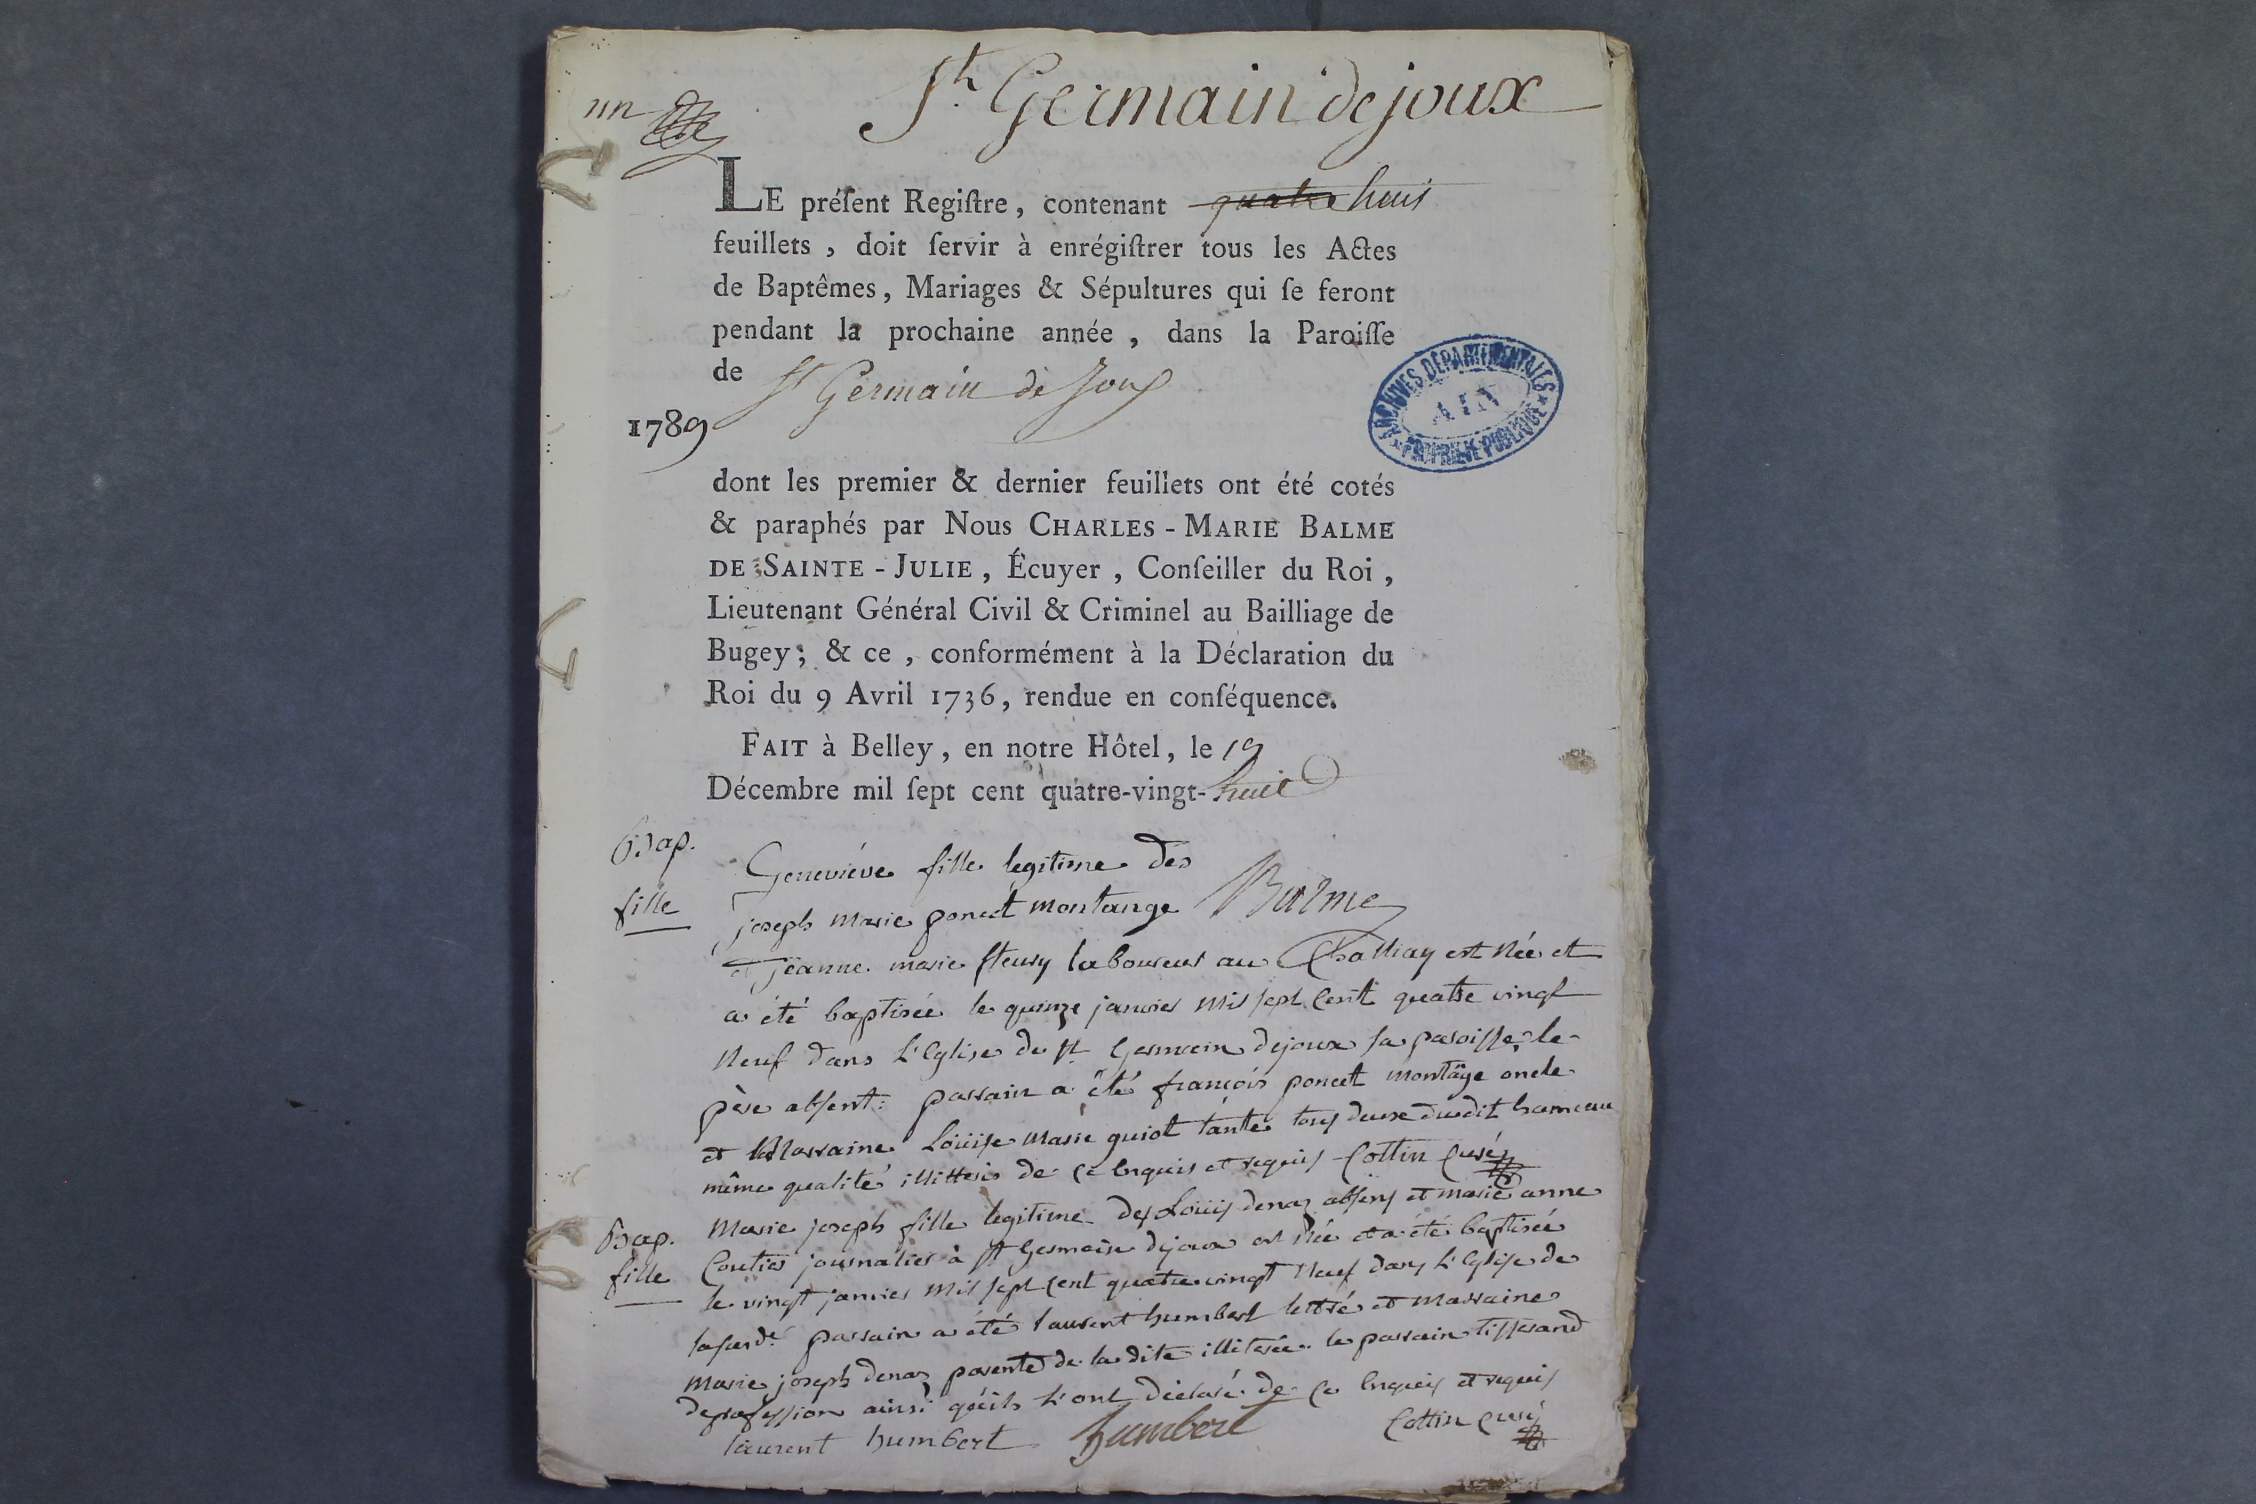 un
St Germain de joux
LE préſent Regiſtre, contenant quatre huit
feuillets, doit ſervir à enrégiſtrer tous les Actes
de Baptêmes, Mariages & Sépultures qui ſe feront
pendant la prochaine année, dans la Paroiſſe
de St Germain de Joux
ARCHIVES DÉPARTEMENTALES
AIN
PROPRIÉTÉ PUBLIQUE
1789
dont les premier & dernier feuillets ont été cotés
& paraphés par Nous CHARLES-MARIE BALME
DE SAINTE-JULIE, Écuyer, Conſeiller du Roi,
Lieutenant Général Civil & Criminel au Bailliage de
Bugey; & ce, conformément à la Déclaration du
Roi du 9 Avril 1736, rendue en conſéquence.
FAIT à Belley, en notre Hôtel, le 19
Décembre mil ſept cent quatre-vingt-huit
Bap.
fille
Geneviéve fille legitime des
joseph marie poncet montange Balme
et jeanne marie fleury laboureur au est née et
a été baptisée le quinze janvier mil sept cent quatre vingt
neuf dans L'Eglise de St Germain dejoux sa paroisse, le
père absent: parrain a été françois poncet montãge oncle
et Marraine Loüise Marie guiot tante tous deux dudit hameau
même qualité illitterés de ce enquis et requis Cottin Curé
Bap.
fille
Marie joseph fille legitime des Loüis denaz absent et marie anne
Coutier journalier à St Germain dejoux est née et a été baptisée
le vingt janvier mil sept cent quatre vingt neuf dans L'Eglise de
parrain a été laurent humbert lettré et Marraine
Marie joseph denaz parente de la dite illiterée. le parrain tisserand
de profession ainsi qu'ils L'ont déclaré de ce enquis et requis
laurent humbert humbert Cottin curé